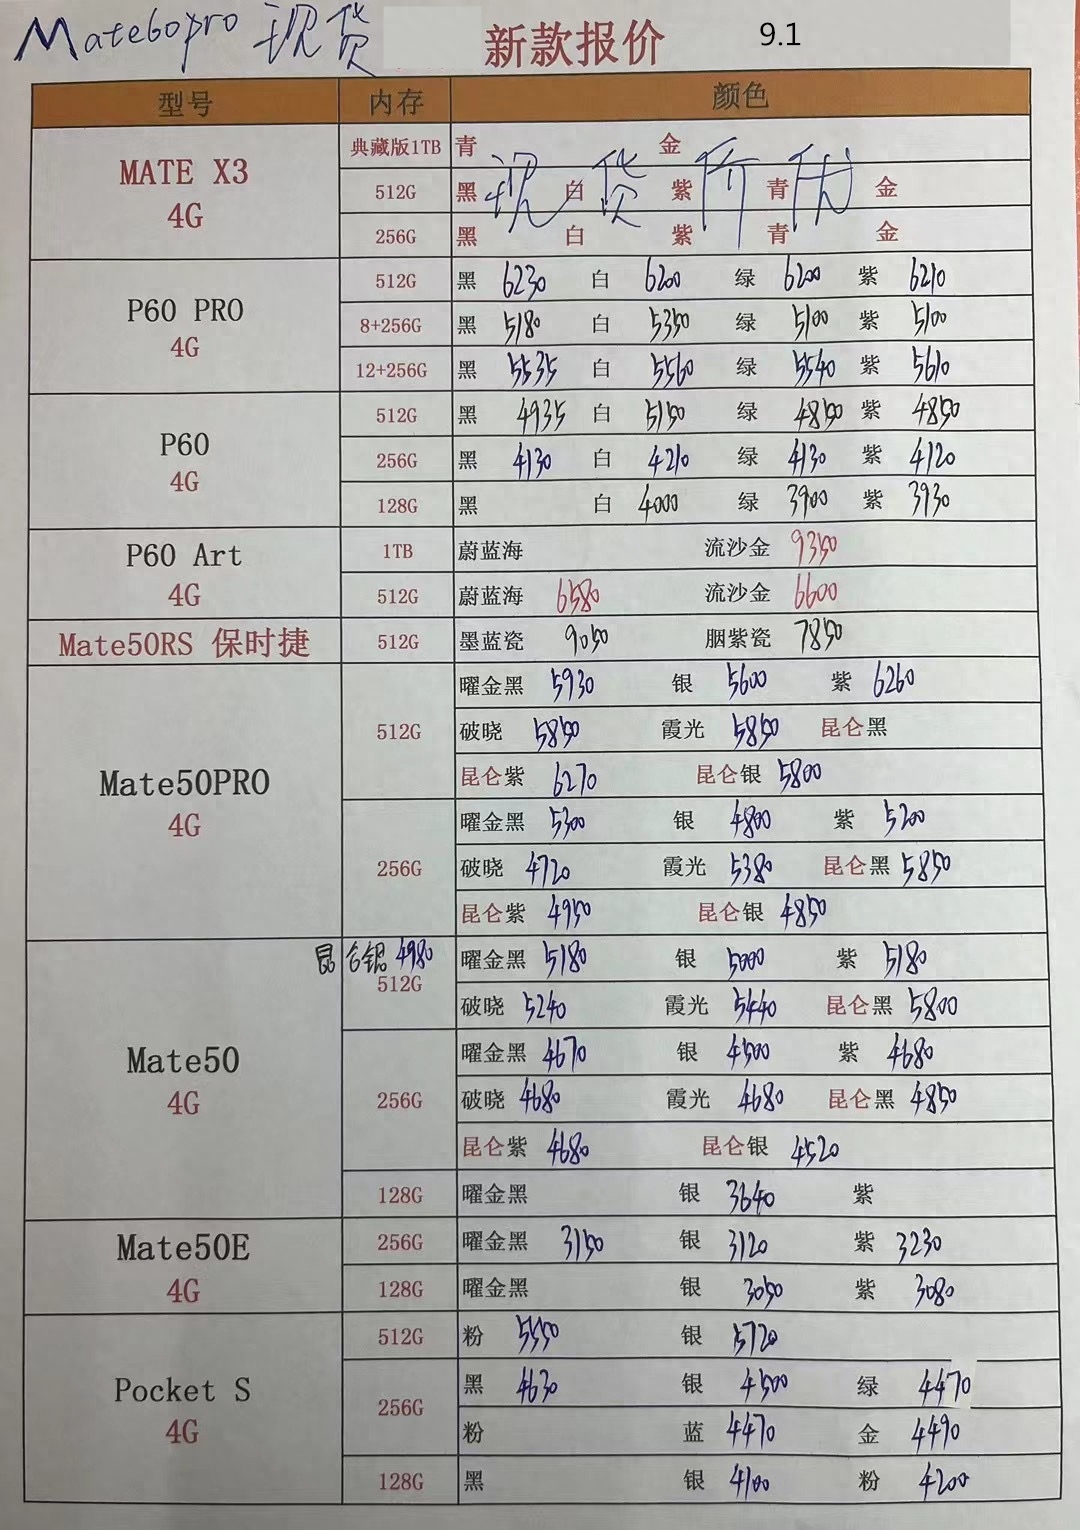 Mate60pro 现货 新款报价 9.1
型号 内存 颜色
MATE X3 4G
典藏版1TB 青 金
512G 黑 白 紫 青 金
256G 黑 白 紫 青 金
现货价优
P60 PRO 4G
512G 黑 6230 白 6200 绿 6200 紫 6210
8+256G 黑 5180 白 5350 绿 5100 紫 5100
12+256G 黑 5535 白 5560 绿 5540 紫 5610
P60 4G
512G 黑 4935 白 5150 绿 4850 紫 4850
256G 黑 4130 白 4210 绿 4130 紫 4120
128G 黑 白 4000 绿 3900 紫 3930
P60 Art 4G
1TB 蔚蓝海 流沙金 9350
512G 蔚蓝海 6580 流沙金 6600
Mate50RS 保时捷 512G 墨蓝瓷 9050 胭紫瓷 7850
Mate50PRO 4G
512G 曜金黑 5930 银 5600 紫 6260
破晓 5850 霞光 5850 昆仑黑
昆仑紫 6270 昆仑银 5800
256G 曜金黑 5300 银 4800 紫 5200
破晓 4720 霞光 5380 昆仑黑 5850
昆仑紫 4950 昆仑银 4850
Mate50 4G
昆仑银 4980
512G 曜金黑 5180 银 5000 紫 5180
破晓 5240 霞光 5440 昆仑黑 5800
256G 曜金黑 4670 银 4500 紫 4680
破晓 4680 霞光 4680 昆仑黑 4850
昆仑紫 4680 昆仑银 4520
128G 曜金黑 银 3640 紫
Mate50E 4G
256G 曜金黑 3150 银 3120 紫 3230
128G 曜金黑 银 3050 紫 3080
Pocket S 4G
512G 粉 5550 银 5720
256G 黑 4630 银 4500 绿 4470
粉 蓝 4470 金 4490
128G 黑 银 4100 粉 4200